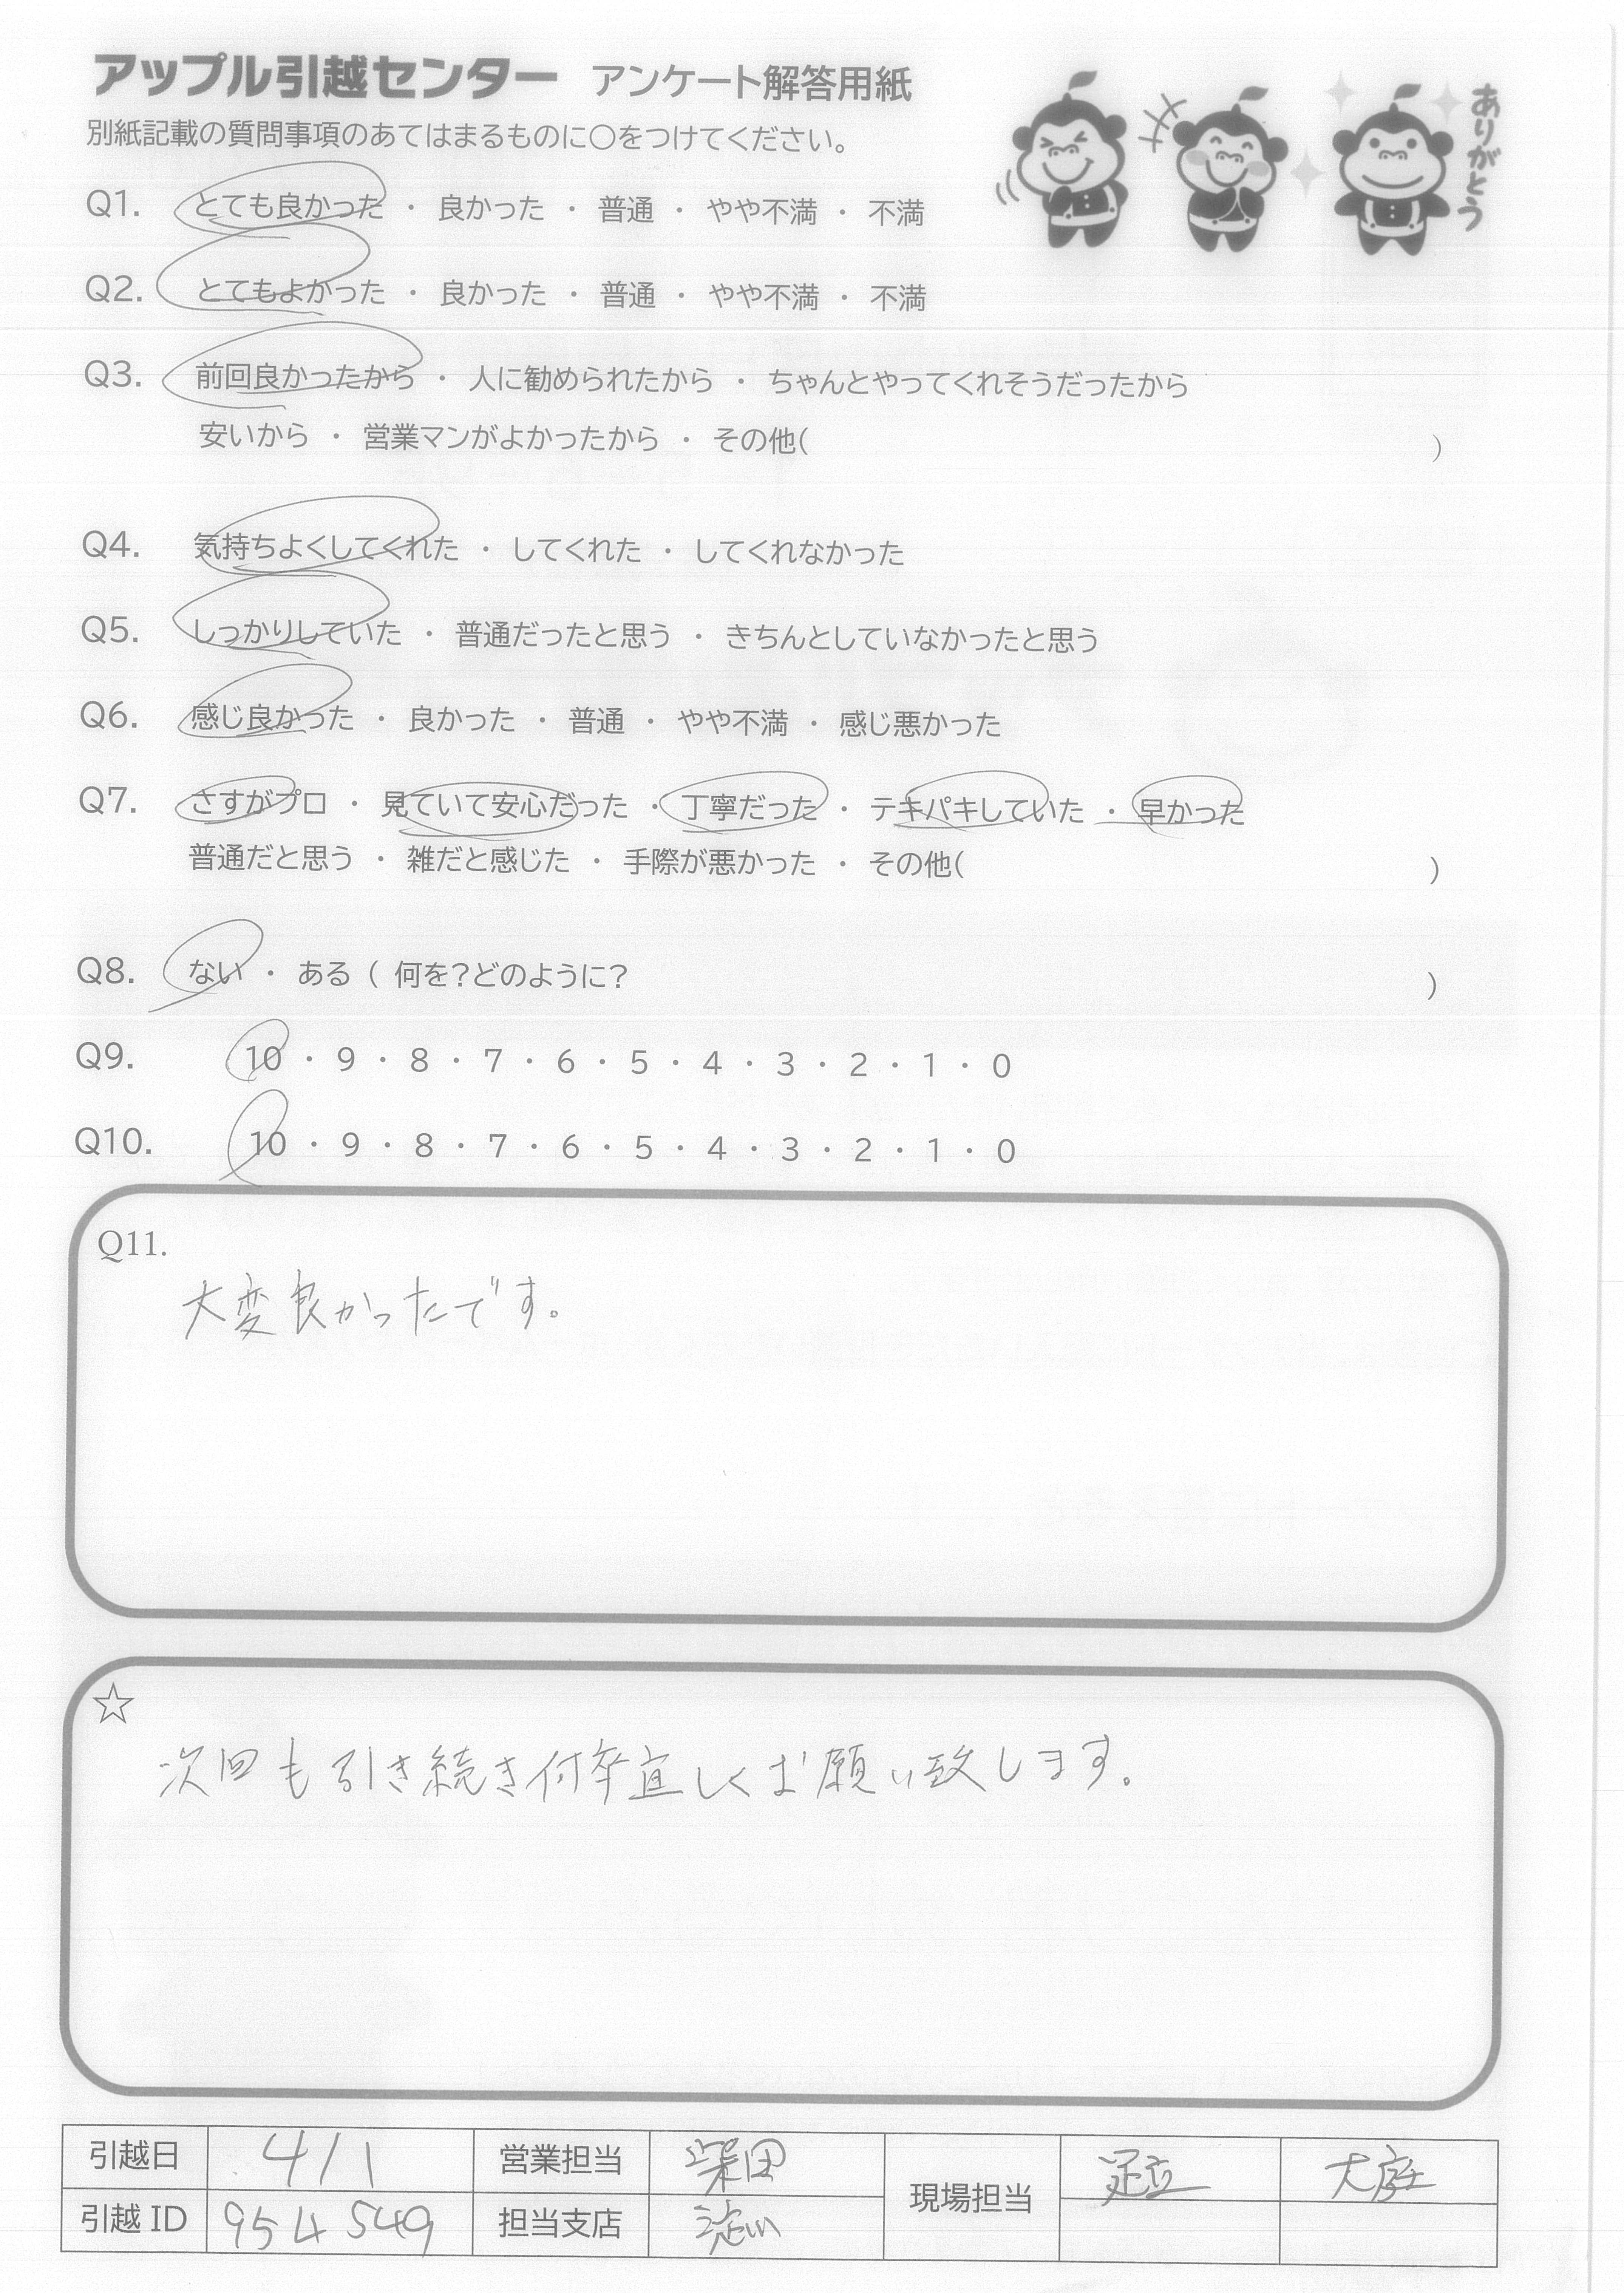 アップル引越センター アンケート解答用紙
ありがとう
別紙記載の質問事項のあてはまるものに○をつけてください。
Q1. とても良かった ・ 良かった ・ 普通 ・ やや不満 ・ 不満
Q2. とてもよかった ・ 良かった ・ 普通 ・ やや不満 ・ 不満
Q3. 前回良かったから ・ 人に勧められたから ・ ちゃんとやってくれそうだったから
安いから ・ 営業マンがよかったから ・ その他( )
Q4. 気持ちよくしてくれた ・ してくれた ・ してくれなかった
Q5. しっかりしていた ・ 普通だったと思う ・ きちんとしていなかったと思う
Q6. 感じ良かった ・ 良かった ・ 普通 ・ やや不満 ・ 感じ悪かった
Q7. さすがプロ ・ 見ていて安心だった ・ 丁寧だった ・ テキパキしていた ・ 早かった
普通だと思う ・ 雑だと感じた ・ 手際が悪かった ・ その他( )
Q8. ない ・ ある ( 何を?どのように? )
Q9. 10 ・ 9 ・ 8 ・ 7 ・ 6 ・ 5 ・ 4 ・ 3 ・ 2 ・ 1 ・ 0
Q10. 10 ・ 9 ・ 8 ・ 7 ・ 6 ・ 5 ・ 4 ・ 3 ・ 2 ・ 1 ・ 0
Q11.
大変良かったです。
☆
次回も引き続き何卒宜しくお願い致します。
引越日 4/1 営業担当 柴田 現場担当 足立 大庭
引越 ID 954549 担当支店 淀川